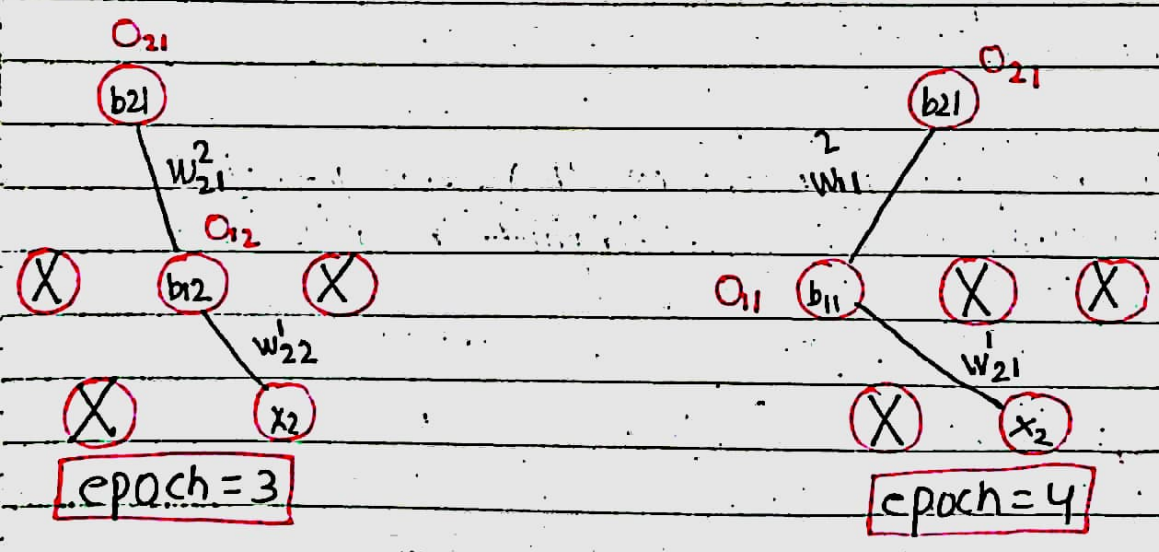 O21
b21
W²21
O12
X b12 X
W¹22
X x2
epoch = 3
O21
b21
W²11
O11 b11 X X
W¹21
X x2
epoch = 4